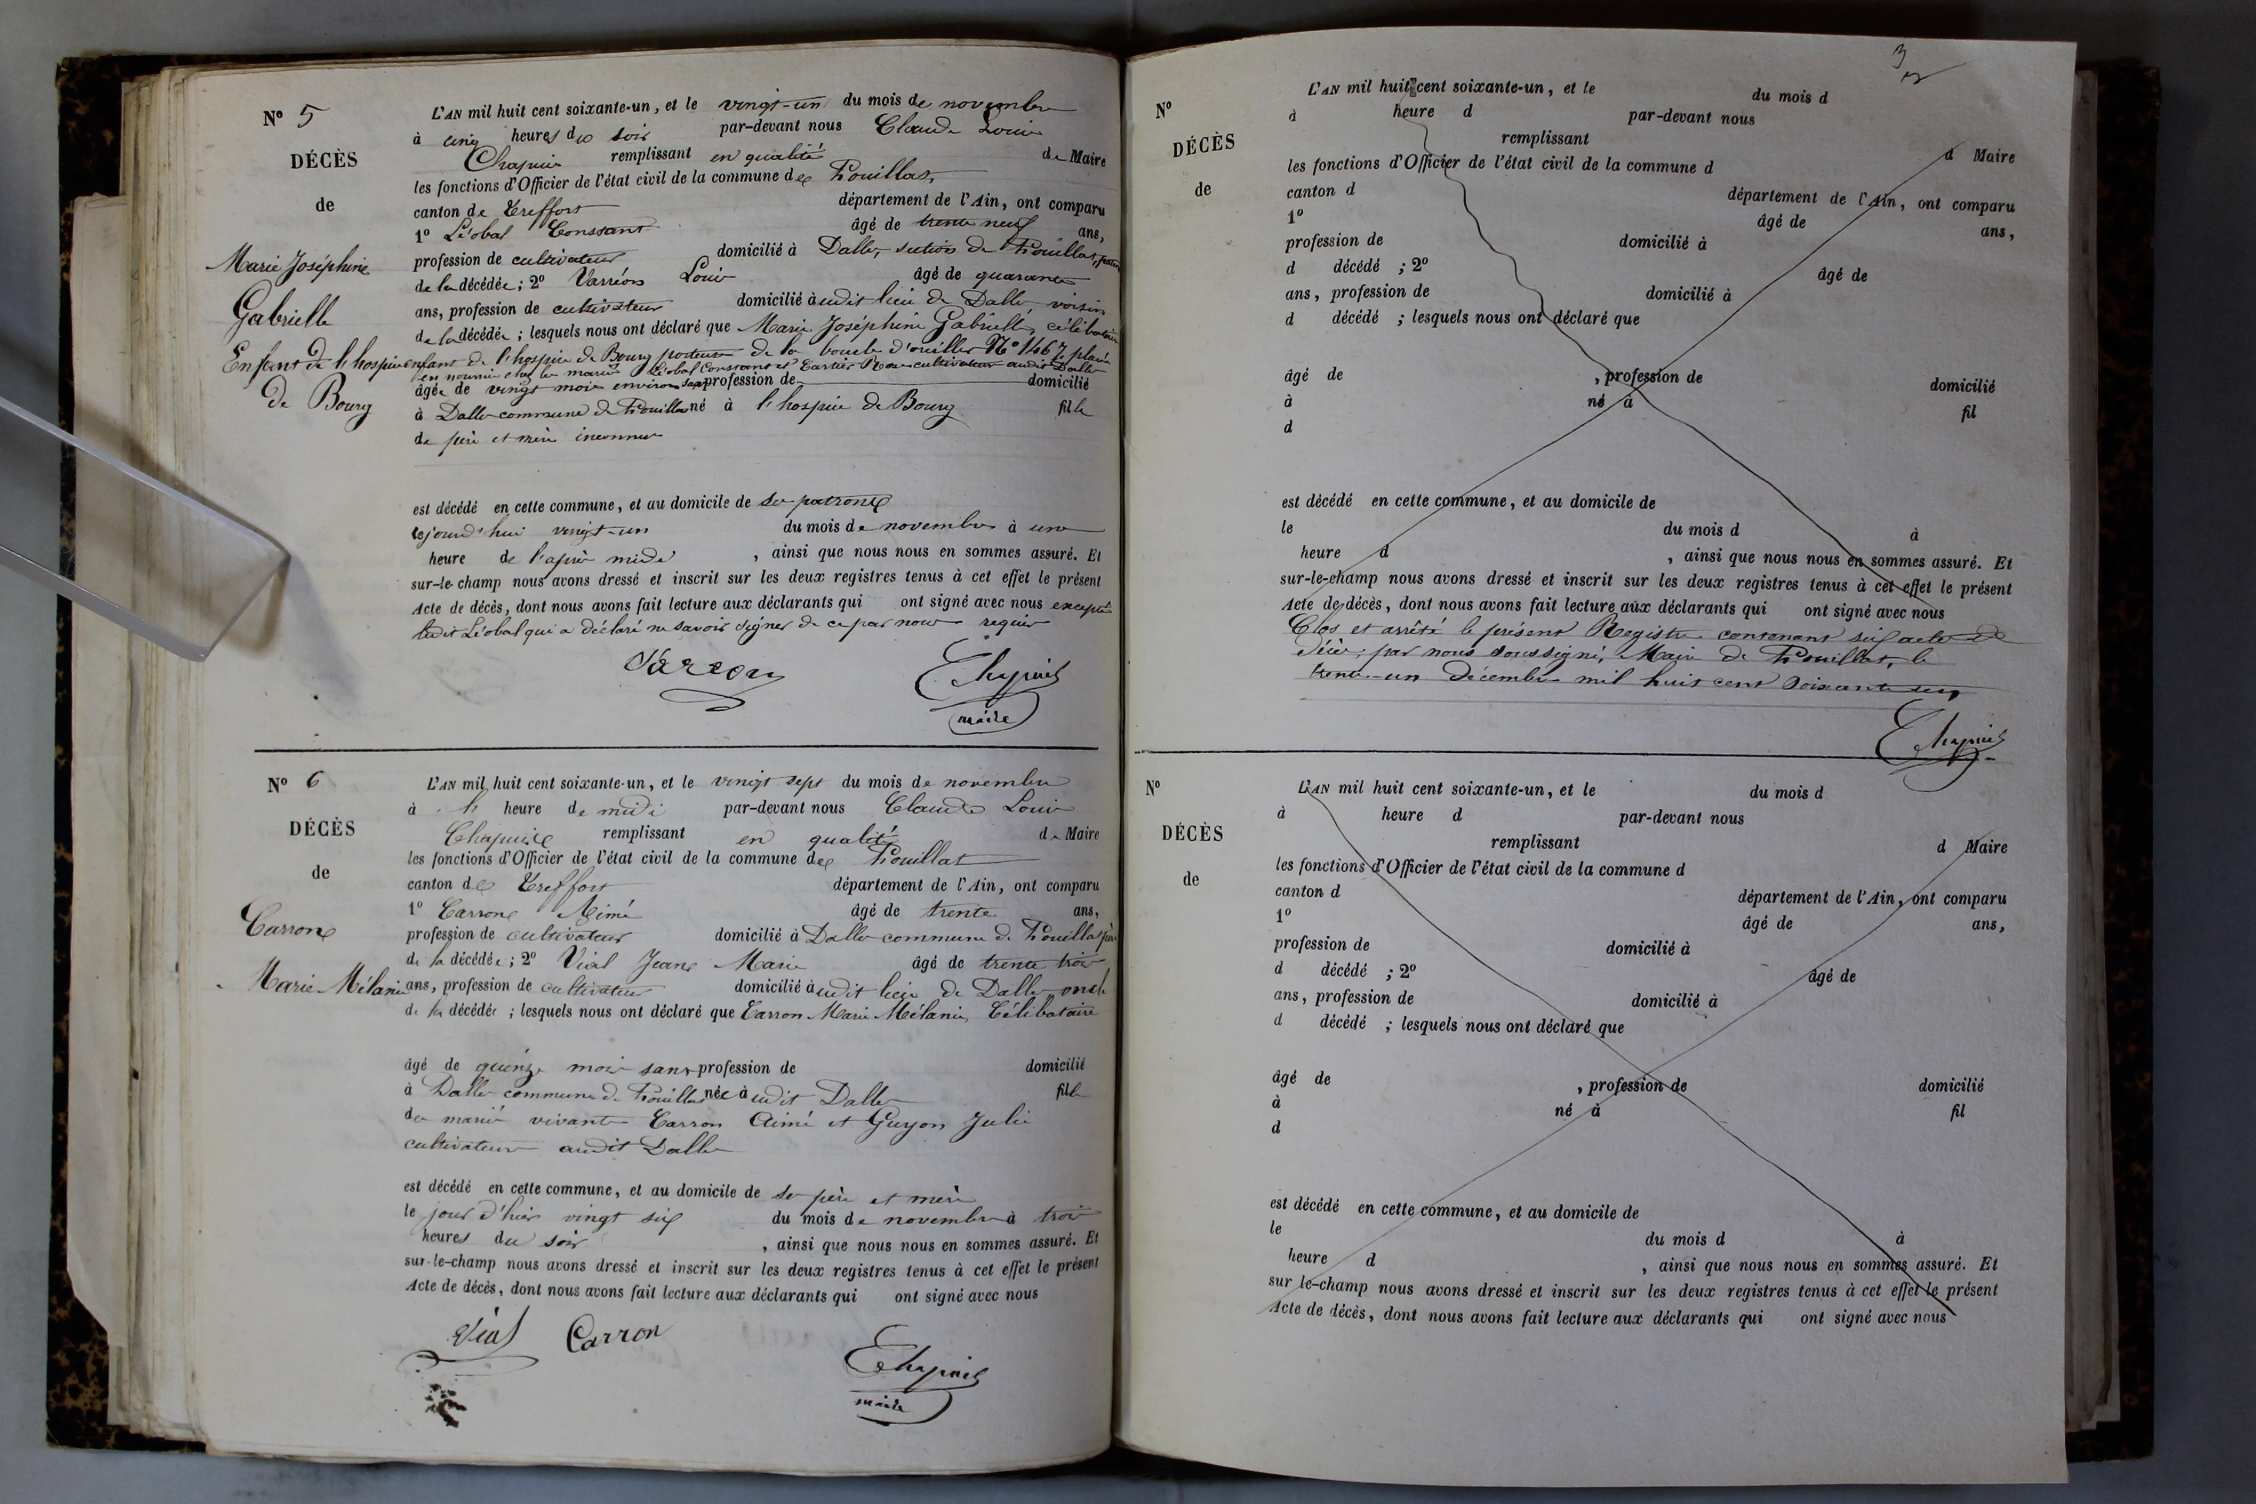 N° 5
DÉCÈS
de
Marie Joséphine
Gabrielle
Enfant de l'hospice
de Bourg
L'AN mil huit cent soixante-un, et le vingt-un du mois de novembre
à cinq heures du soir par-devant nous Claude Louis
Chapuis remplissant en qualité de Maire
les fonctions d'Officier de l'état civil de la commune de Pouillat,
canton de Treffort département de l'Ain, ont comparu
1° Léobal Constant âgé de trente neuf ans,
profession de cultivateur domicilié à Dalles, section de Pouillat, patron
de la décédée; 2° Varréon Louis âgé de quarante
ans, profession de cultivateur domicilié audit lieu de Dalles voisin
de la décédée; lesquels nous ont déclaré que Marie Joséphine Gabrielle, célibataire
enfant de l'hospice de Bourg porteuse de la boucle d'oreilles N° 1467, placée
en nourrice chez les mariés Léobal Constant et cultivateurs audit Dalles
âgée de vingt mois environ sans profession de domicilié
à Dalles commune de Pouillat né à l'hospice de Bourg fille
de père et mère inconnus
est décédé en cette commune, et au domicile de ses patrons
cejourd'hui vingt-un du mois de novembre à une
heure de l'après midi, ainsi que nous nous en sommes assuré. Et
sur-le-champ nous avons dressé et inscrit sur les deux registres tenus à cet effet le présent
Acte de décès, dont nous avons fait lecture aux déclarants qui ont signé avec nous excepté
ledit Léobal qui a déclaré ne savoir signer de ce par nous requis
Varreon Chapuis
maire
N° 6
DÉCÈS
de
Carron
Marie Mélanie
L'AN mil huit cent soixante-un, et le vingt sept du mois de novembre
à l' heure de midi par-devant nous Claude Louis
Chapuis remplissant en qualité de Maire
les fonctions d'Officier de l'état civil de la commune de Pouillat
canton de Treffort département de l'Ain, ont comparu
1° Carron Aimé âgé de trente ans,
profession de cultivateur domicilié à Dalles commune de Pouillat père
de la décédée; 2° Vial Jean Marie âgé de trente trois
ans, profession de cultivateur domicilié audit lieu de Dalles oncle
de la décédée; lesquels nous ont déclaré que Carron Marie Mélanie, Célibataire
âgé de quinze mois sans profession de domicilié
à Dalles commune de Pouillat née audit Dalles fille
des mariés vivants Carron Aimé et Guyon Julie
cultivateurs audit Dalles
est décédé en cette commune, et au domicile de ses père et mère
le jour d'hier vingt six du mois de novembre à trois
heures du soir, ainsi que nous nous en sommes assuré. Et
sur-le-champ nous avons dressé et inscrit sur les deux registres tenus à cet effet le présent
Acte de décès, dont nous avons fait lecture aux déclarants qui ont signé avec nous
Vial Carron
Chapuis
maire
3
N°
DÉCÈS
de
L'AN mil huit cent soixante-un, et le du mois d
à heure d par-devant nous
remplissant d Maire
les fonctions d'Officier de l'état civil de la commune d
canton d département de l'Ain, ont comparu
1° âgé de ans,
profession de domicilié à
d décédé ; 2° âgé de
ans, profession de domicilié à
d décédé ; lesquels nous ont déclaré que
âgé de , profession de domicilié
à né à fil
d
est décédé en cette commune, et au domicile de
le du mois d à
heure d , ainsi que nous nous en sommes assuré. Et
sur-le-champ nous avons dressé et inscrit sur les deux registres tenus à cet effet le présent
Acte de décès, dont nous avons fait lecture aux déclarants qui ont signé avec nous
Clos et arrêté le présent Registre contenant six actes de
décès, par nous soussigné, Maire de Pouillat, le
trente-un Décembre mil huit cent soixante un
Chapuis
N°
DÉCÈS
de
L'AN mil huit cent soixante-un, et le du mois d
à heure d par-devant nous
remplissant d Maire
les fonctions d'Officier de l'état civil de la commune d
canton d département de l'Ain, ont comparu
1° âgé de ans,
profession de domicilié à
d décédé ; 2° âgé de
ans, profession de domicilié à
d décédé ; lesquels nous ont déclaré que
âgé de , profession de domicilié
à né à fil
d
est décédé en cette commune, et au domicile de
le du mois d à
heure d , ainsi que nous nous en sommes assuré. Et
sur le-champ nous avons dressé et inscrit sur les deux registres tenus à cet effet le présent
Acte de décès, dont nous avons fait lecture aux déclarants qui ont signé avec nous